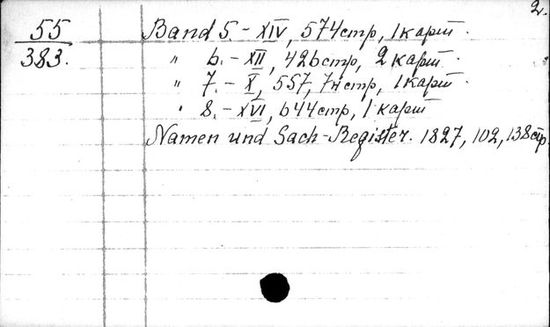 2.
55
383.
Band 5. - XIV, 574 стр, 1 карт.
" 6. - XII, 426 стр, 2 карт.
" 7. - X, 557, 74 стр, 1 карт
" 8. - XVI, 644 стр, 1 карт
Namen und Sach-Register. 1827, 102, 138 стр.